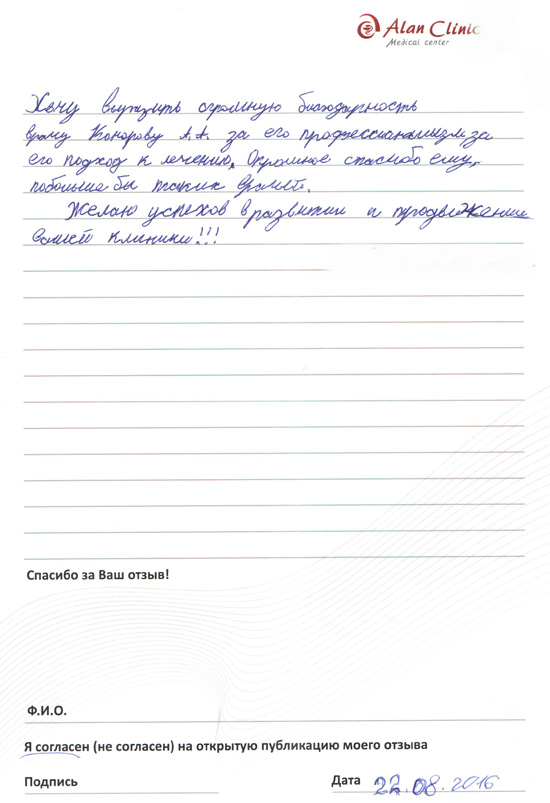 Alan Clinic
Medical center
Хочу выразить огромную благодарность
врачу Конорову А.А. за его профессионализм, за
его подход к лечению. Огромное спасибо ему,
побольше бы таких врачей.
Желаю успехов в развитии и продвижении
вашей клиники!!!
Спасибо за Ваш отзыв!
Ф.И.О.
Я согласен (не согласен) на открытую публикацию моего отзыва
Подпись Дата 22.08.2016